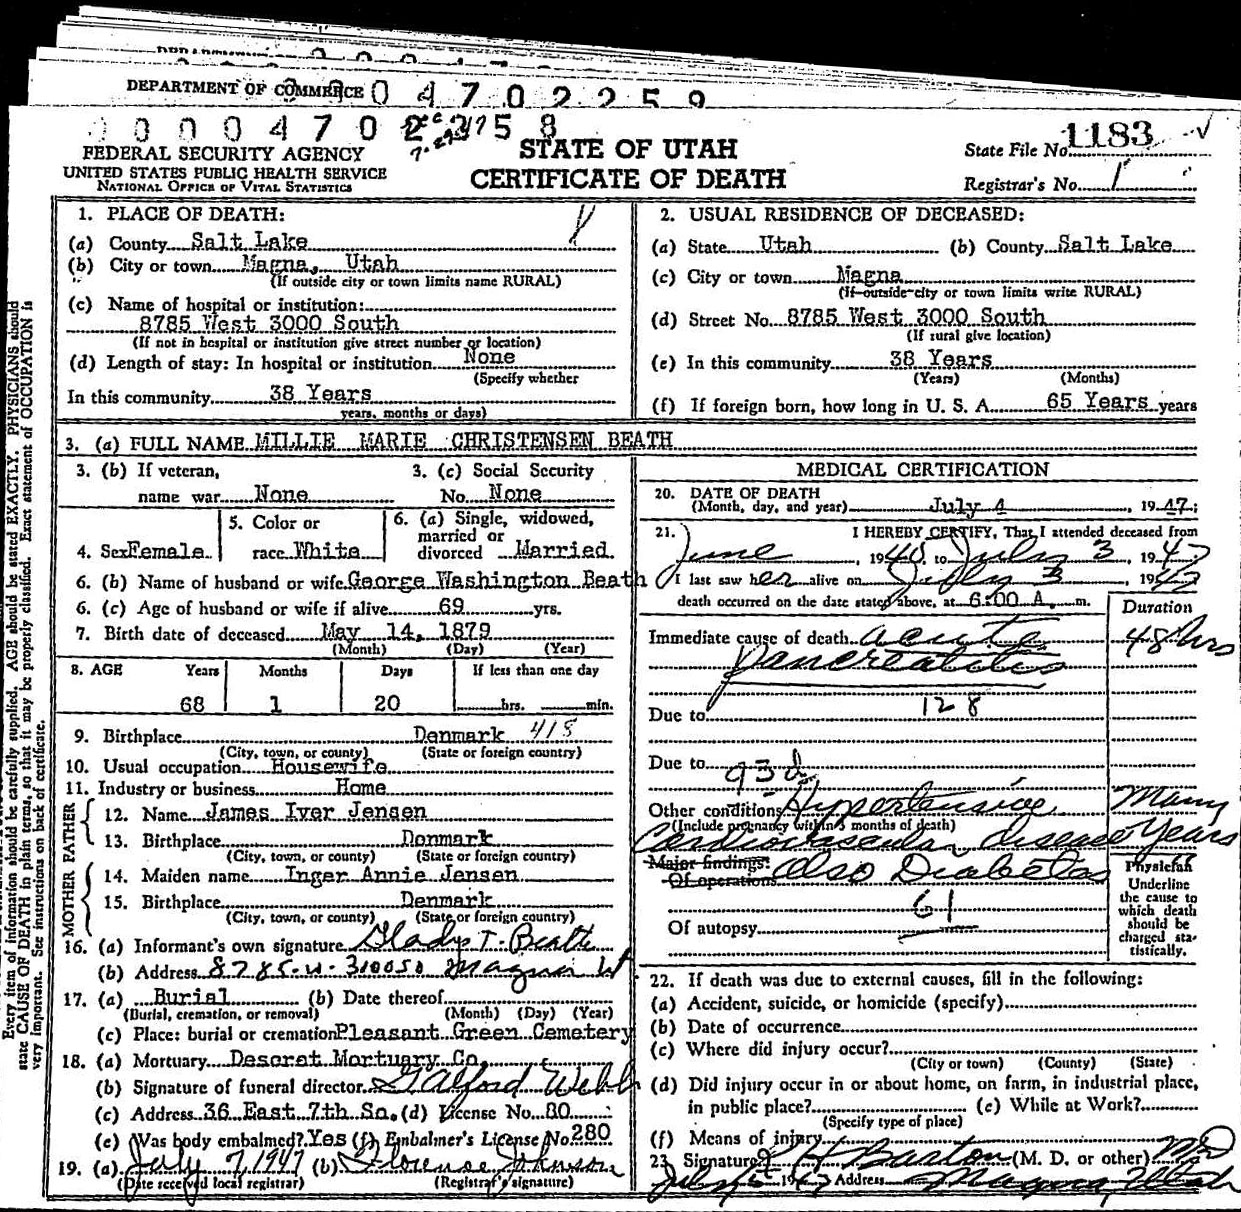 DEPARTMENT OF COMMERCE 0 4 7 0 2 2 5 9
0 0 0 0 4 7 0 2 2 5 8
FEDERAL SECURITY AGENCY
UNITED STATES PUBLIC HEALTH SERVICE
NATIONAL OFFICE OF VITAL STATISTICS
STATE OF UTAH
CERTIFICATE OF DEATH
State File No. 1183
Registrar's No. 1
1. PLACE OF DEATH:
(a) County Salt Lake
(b) City or town Magna, Utah
(If outside city or town limits name RURAL)
(c) Name of hospital or institution:
8785 West 3000 South
(If not in hospital or institution give street number or location)
(d) Length of stay: In hospital or institution None
(Specify whether
In this community 38 Years
years, months or days)
2. USUAL RESIDENCE OF DECEASED:
(a) State Utah (b) County Salt Lake
(c) City or town Magna
(If outside city or town limits write RURAL)
(d) Street No. 8785 West 3000 South
(If rural give location)
(e) In this community 38 Years
(Years) (Months)
(f) If foreign born, how long in U. S. A. 65 Years years
3. (a) FULL NAME MILLIE MARIE CHRISTENSEN BEATH
3. (b) If veteran,
name war None
3. (c) Social Security
No. None
4. Sex Female
5. Color or
race White
6. (a) Single, widowed,
married or
divorced Married
6. (b) Name of husband or wife George Washington Beath
6. (c) Age of husband or wife if alive 69 yrs.
7. Birth date of deceased May 14, 1879
(Month) (Day) (Year)
8. AGE Years Months Days If less than one day
68 1 20 hrs. min.
9. Birthplace Denmark 418
(City, town, or county) (State or foreign country)
10. Usual occupation Housewife
11. Industry or business Home
FATHER
12. Name James Iver Jensen
13. Birthplace Denmark
(City, town, or county) (State or foreign country)
MOTHER
14. Maiden name Inger Annie Jensen
15. Birthplace Denmark
(City, town, or county) (State or foreign country)
16. (a) Informant's own signature Gladys T. Beath
(b) Address 8785 W. 3100 So Magna Ut
17. (a) Burial (b) Date thereof
(Burial, cremation, or removal) (Month) (Day) (Year)
(c) Place: burial or cremation Pleasant Green Cemetery
18. (a) Mortuary Deseret Mortuary Co.
(b) Signature of funeral director Galford Webb
(c) Address 36 East 7th So. (d) License No. 80
(e) Was body embalmed? Yes (f) Embalmer's License No. 280
19. (a) July 7, 1947 (b) Florence Johnson
(Date received local registrar) (Registrar's signature)
MEDICAL CERTIFICATION
20. DATE OF DEATH
(Month, day, and year) July 4, 1947;
21. I HEREBY CERTIFY, That I attended deceased from
June, 1940, to July 3, 1947
I last saw her alive on July 3, 1947
death occurred on the date stated above, at 6:00 A. m.
Duration
Immediate cause of death acute 48 hrs
pancreatitis
128
Due to
Due to 93d
Other conditions Hypertensive Many
(Include pregnancy within 3 months of death)
Cardiovascular disease Years
Major findings: also Diabetes
Of operations
61
Of autopsy
Physician
Underline
the cause to
which death
should be
charged sta-
tistically.
22. If death was due to external causes, fill in the following:
(a) Accident, suicide, or homicide (specify)
(b) Date of occurrence
(c) Where did injury occur?
(City or town) (County) (State)
(d) Did injury occur in or about home, on farm, in industrial place,
in public place? (e) While at Work?
(Specify type of place)
(f) Means of injury
23. Signature Barton (M. D. or other) MD
July 1947 Address Magna, Utah
Every item of information should be carefully supplied. AGE should be stated EXACTLY. PHYSICIANS should
state CAUSE OF DEATH in plain terms, so that it may be properly classified. Exact statement of OCCUPATION is
very important. See instructions on back of certificate.